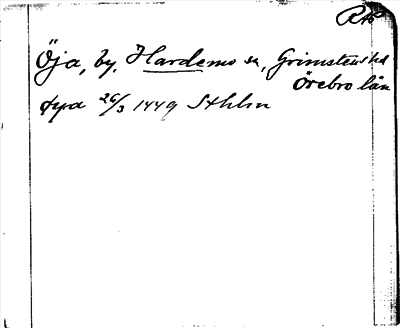 Öja, by, Hardemo sn, Grimstens hd
Örebro län
øyra 26/3 1449 Sthlm